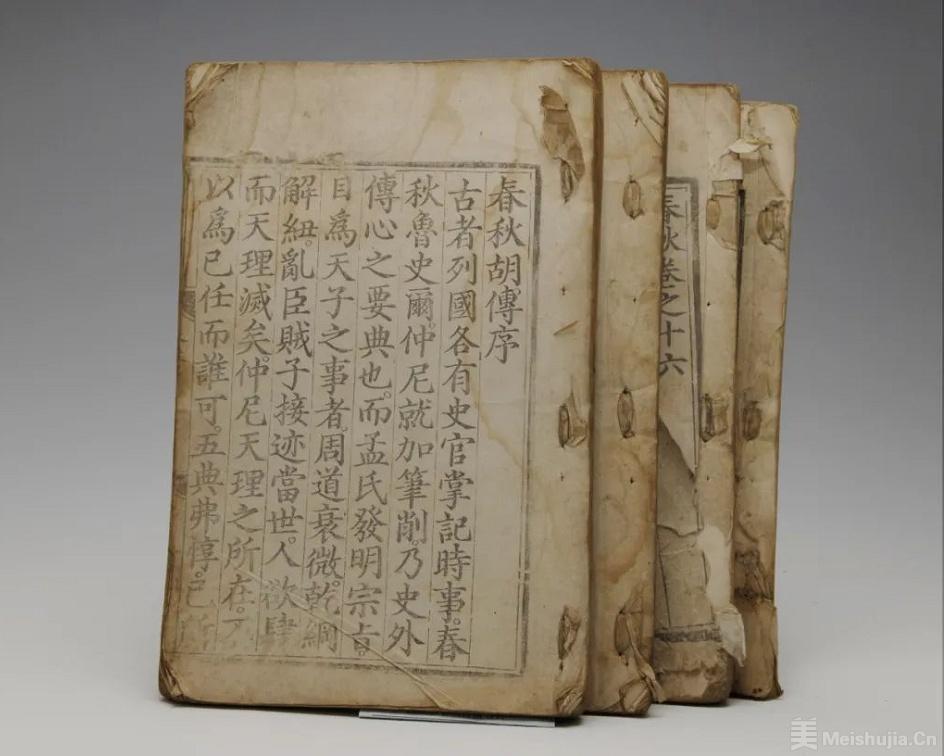 春秋胡傳序
古者列國各有史官掌記時事。春
秋魯史爾。仲尼就加筆削。乃史外
傳心之要典也。而孟氏發明宗旨。
目爲天子之事者。周道衰微。乾綱
解紐。亂臣賊子接迹當世。人欲肆
而天理滅矣。仲尼天理之所在。不
以爲已任而誰可。五典弗惇。已所
春秋卷之十六
美 Meishujia.Cn